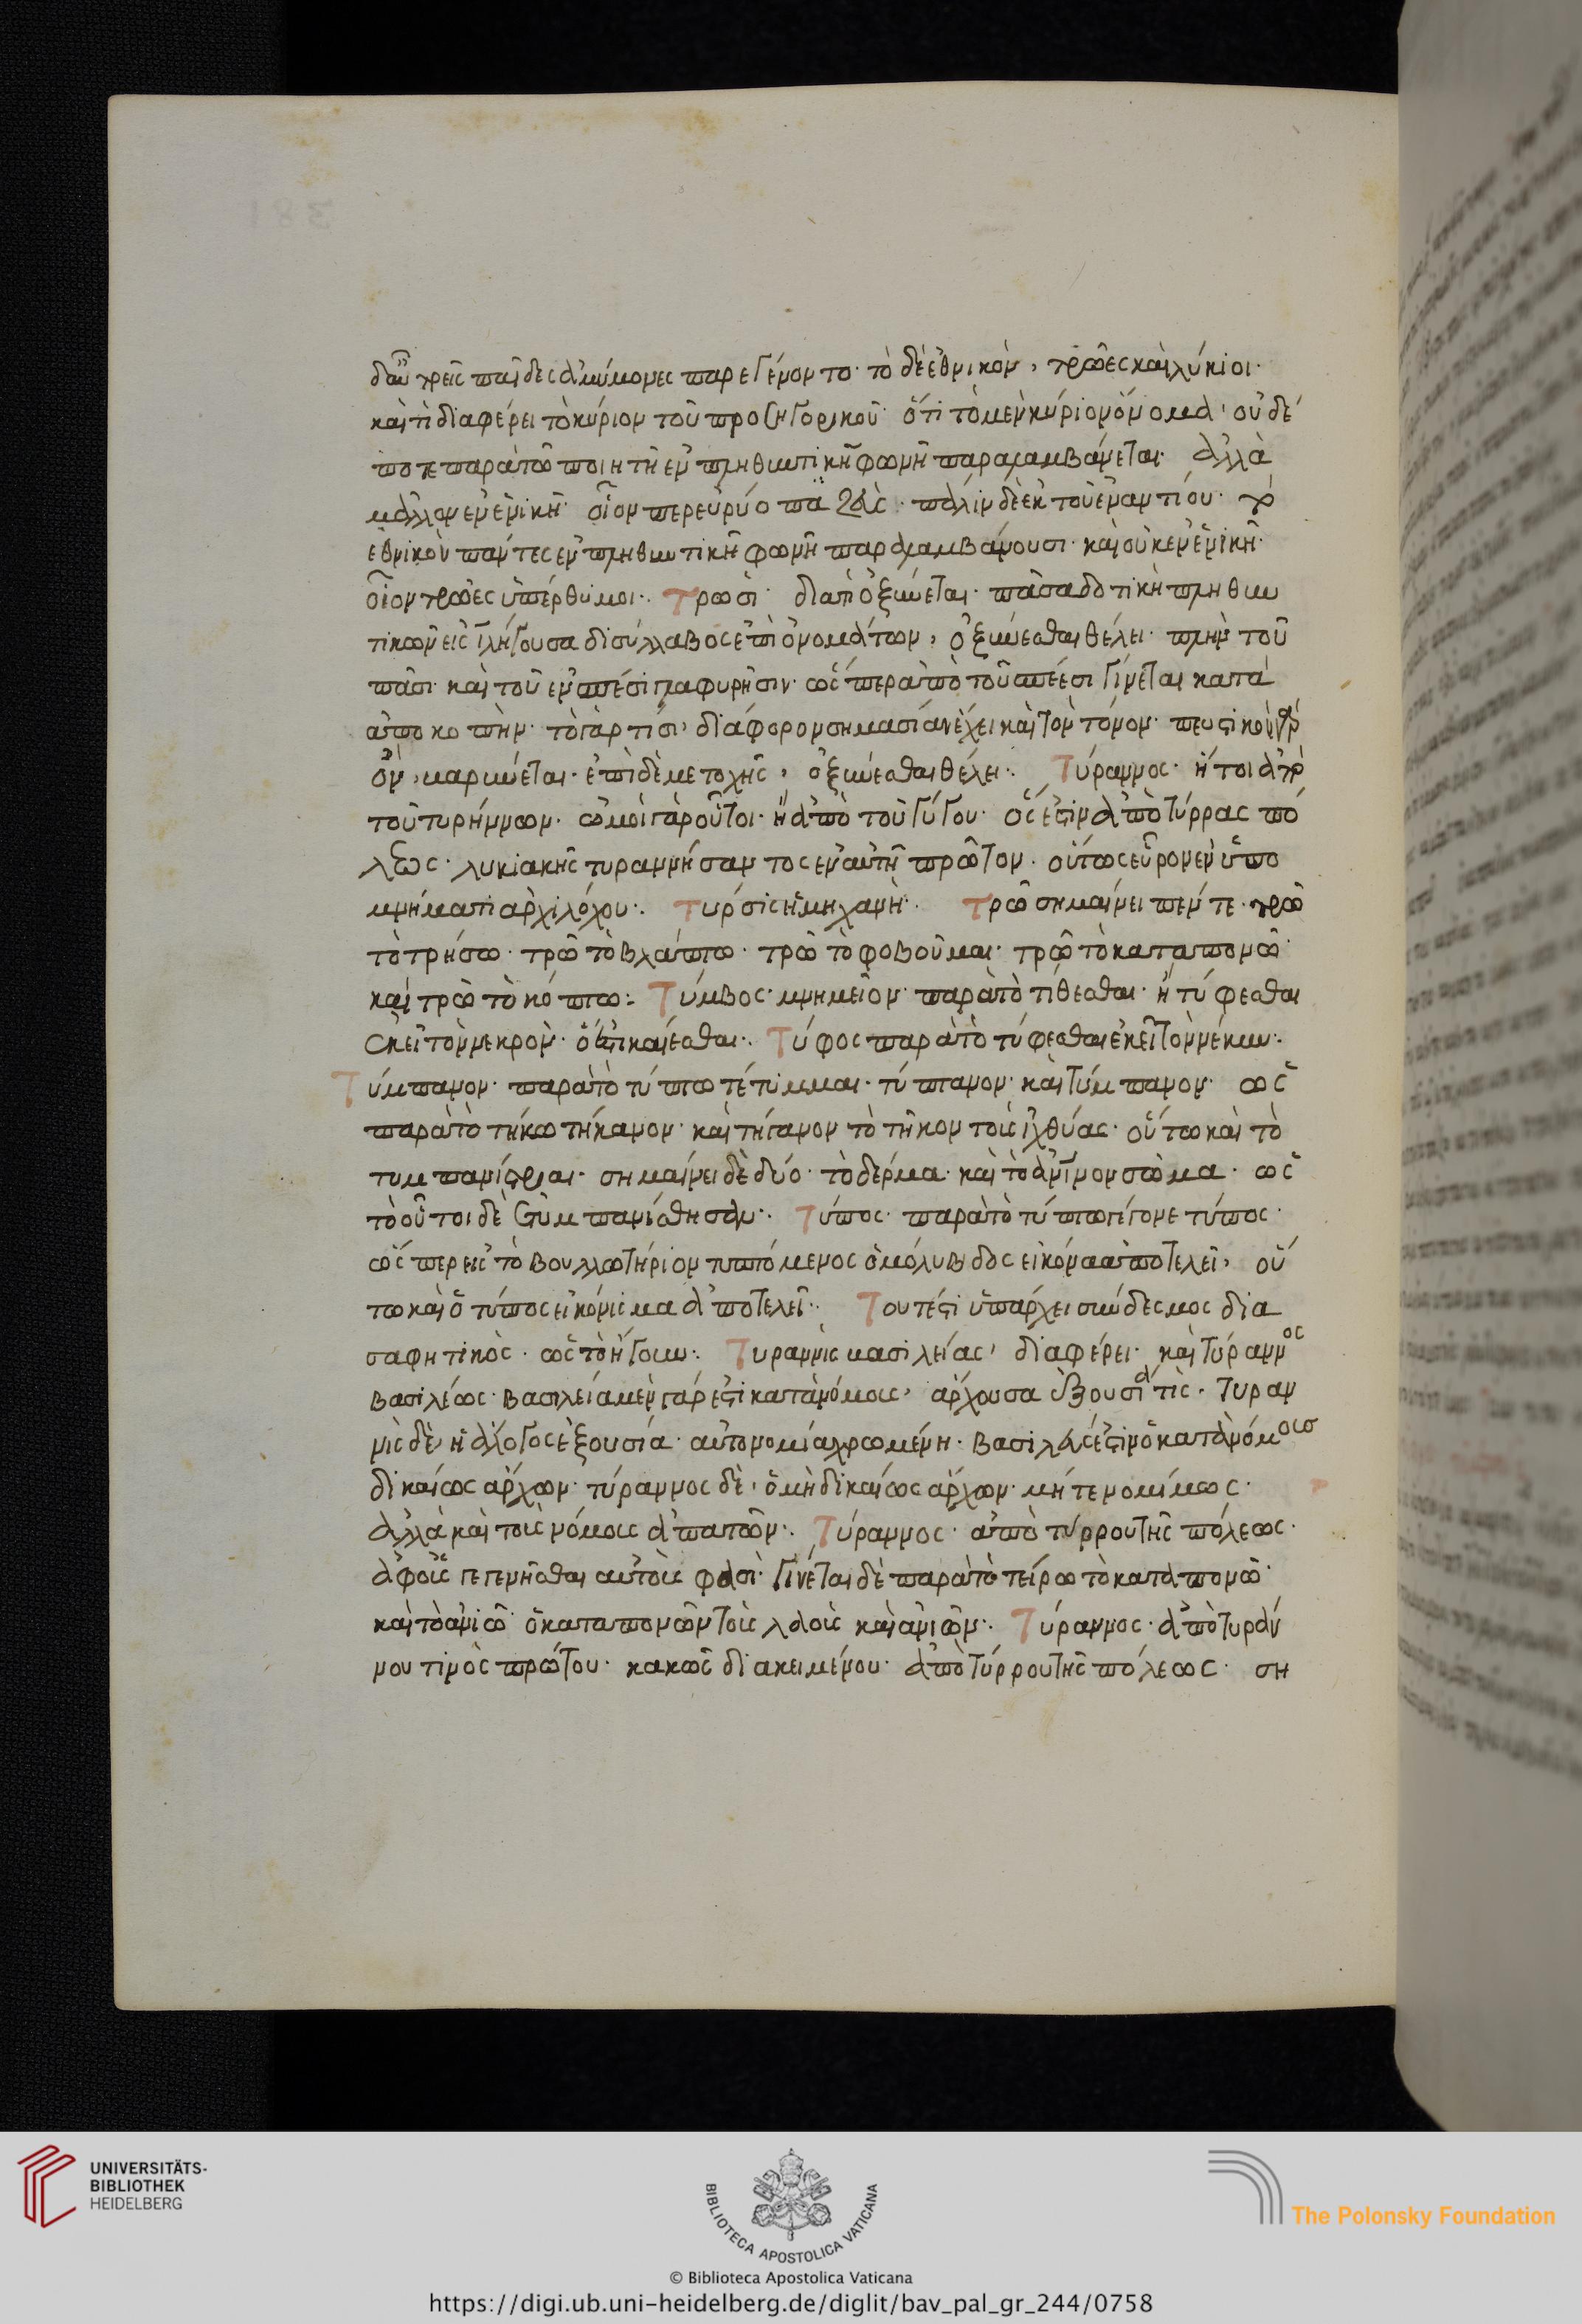 δαῦ τρεῖς παῖδες ἀμύμονες παρεγένοντο· τὸ δὲ ἐθνικὸν, τρῶες καὶ λύκιοι·
καὶ τί διαφέρει τὸ κύριον τοῦ προσηγορικοῦ· ὅτι τὸ μὲν κύριον ὄνομα, οὐδέ
ποτε παρὰ τῶ ποιητῆ ἐν πληθυντικῆ φωνῆ παραλαμβάνεται· ἀλλὰ
μᾶλλον ἐν ἑνικῆ· οἷον περ εὐρύοπα ζεύς· πάλιν δὲ ἐκ τοῦ ἐναντίου· τὸ
ἐθνικὸν πάντες ἐν πληθυντικῆ φωνῆ παραλαμβάνουσι· καὶ οὐκ ἐν ἑνικῆ·
οἷον τρῶες ὑπέρθυμοι·. Τρωσὶ· διατί ὀξύνεται· πᾶσα δοτικὴ πληθυν
τικῶν εἰς ϊ λήγουσα δισύλλαβος ἐπὶ ὀνομάτων, ὀξύνεσθαι θέλει· πλὴν τοῦ
πᾶσι· καὶ τοῦ ἐν σπέσι γλαφυρῆσιν· ὥσπερ ἀπὸ τοῦ σπέεσι γίνεται κατὰ
ἀποκοπὴν· τὸ γὰρ τίσι, διάφορον σημασίαν ἔχει καὶ τὸν τόνον· πευστικὸν γὰρ
ὂν, βαρύνεται· ἐπὶ δὲ μετοχῆς, ὀξύνεσθαι θέλει·. Τύραννος· ἤτοι ἀπὸ
τοῦ τυρήννων· ὠμοὶ γὰρ οὗτοι· ἢ ἀπὸ τοῦ γύγου· ὅς ἐστιν ἀπὸ τύρρας πό
λεως· λυκιακῆς τυραννήσαντος ἐν αὐτῆ πρῶτον· οὕτως εὕρομεν ὑπο
μνήματι ἀρχιλόχου·. Τύρσις ἡ μηχανὴ·. Τρῶ σημαίνει πέντε· τρῶ
τὸ τρήσω· τρῶ τὸ βλάπτω· τρῶ τὸ φοβοῦμαι· τρῶ τὸ καταπονῶ·
καὶ τρῶ τὸ κόπτω·. Τύμβος· μνημεῖον· παρὰ τὸ τίθεσθαι· ἢ τύφεσθαι
ἐκεῖ τὸν νεκρὸν· ὅ ἐστι καίεσθαι·. Τύφος παρὰ τὸ τύφεσθαι ἐκεῖ τὸν νέκυν·.
Τύμπανον· παρὰ τὸ τύπτω τέτυμμαι· τύπανον· καὶ τύμπανον· ὡς
παρὰ τὸ τήκω τήκανον· καὶ τήγανον τὸ τῆκον τοὺς ἰχθύας· οὕτω καὶ τὸ
τυμπανίζεται· σημαίνει δὲ δύο· τὸ δέρμα· καὶ τὸ ἀντίμονστωμα· ὡς
τὸ οὗτοι δὲ ἐτυμπανίσθησαν·. Τύπος· παρὰ τὸ τύπτω γέγονε τύπος·
ὥσπερ εἰς τὸ βουλλωτήριον τυπτόμενος ὁ μόλυβδος εἰκόνα ἀποτελεῖ, οὕ
τω καὶ ὁ τύπος εἰκόνισμα ἀποτελεῖ·. Τουτέστι ὑπάρχει σύνδεσμος δια
σαφητικὸς· ὡς τὸ ἤγουν·. Τυραννὶς βασιλείας, διαφέρει· καὶ τύραννος
βασιλέως· βασιλεία μὲν γάρ ἐστι κατὰ νόμους, ἄρχουσα ἐξουσία τίς· τυραν
νὶς δὲ, ἡ ἄλογος ἐξουσία· αὐτονομία χρωμένη· βασιλεύς ἐστιν ὁ κατὰ νόμους
δικαίως ἄρχων· τύραννος δὲ, ὁ μὴ δικαίως ἄρχων· μήτε νομίμως·
ἀλλὰ καὶ τοὺς νόμους ἀπατῶν·. Τύραννος· ἀπὸ τύρρου τῆς πόλεως·
ἀφ' οἷς γεγενῆσθαι αὐτοὺς φασὶ· γίνεται δὲ παρὰ τὸ τείρω τὸ καταπονῶ·
καὶ τὸ ἀνιῶ· ὁ καταπονῶν τοὺς λαοὺς καὶ ἀνιῶν·. Τύραννος· ἀπὸ τυράν
νου τινὸς πρώτου· κακῶς διακειμένου· ἀπὸ τύρρου τῆς πόλεως· ση
UNIVERSITÄTS-
BIBLIOTHEK
HEIDELBERG
BIBLIOTECA APOSTOLICA VATICANA
The Polonsky Foundation
© Biblioteca Apostolica Vaticana
https://digi.ub.uni-heidelberg.de/diglit/bav_pal_gr_244/0758